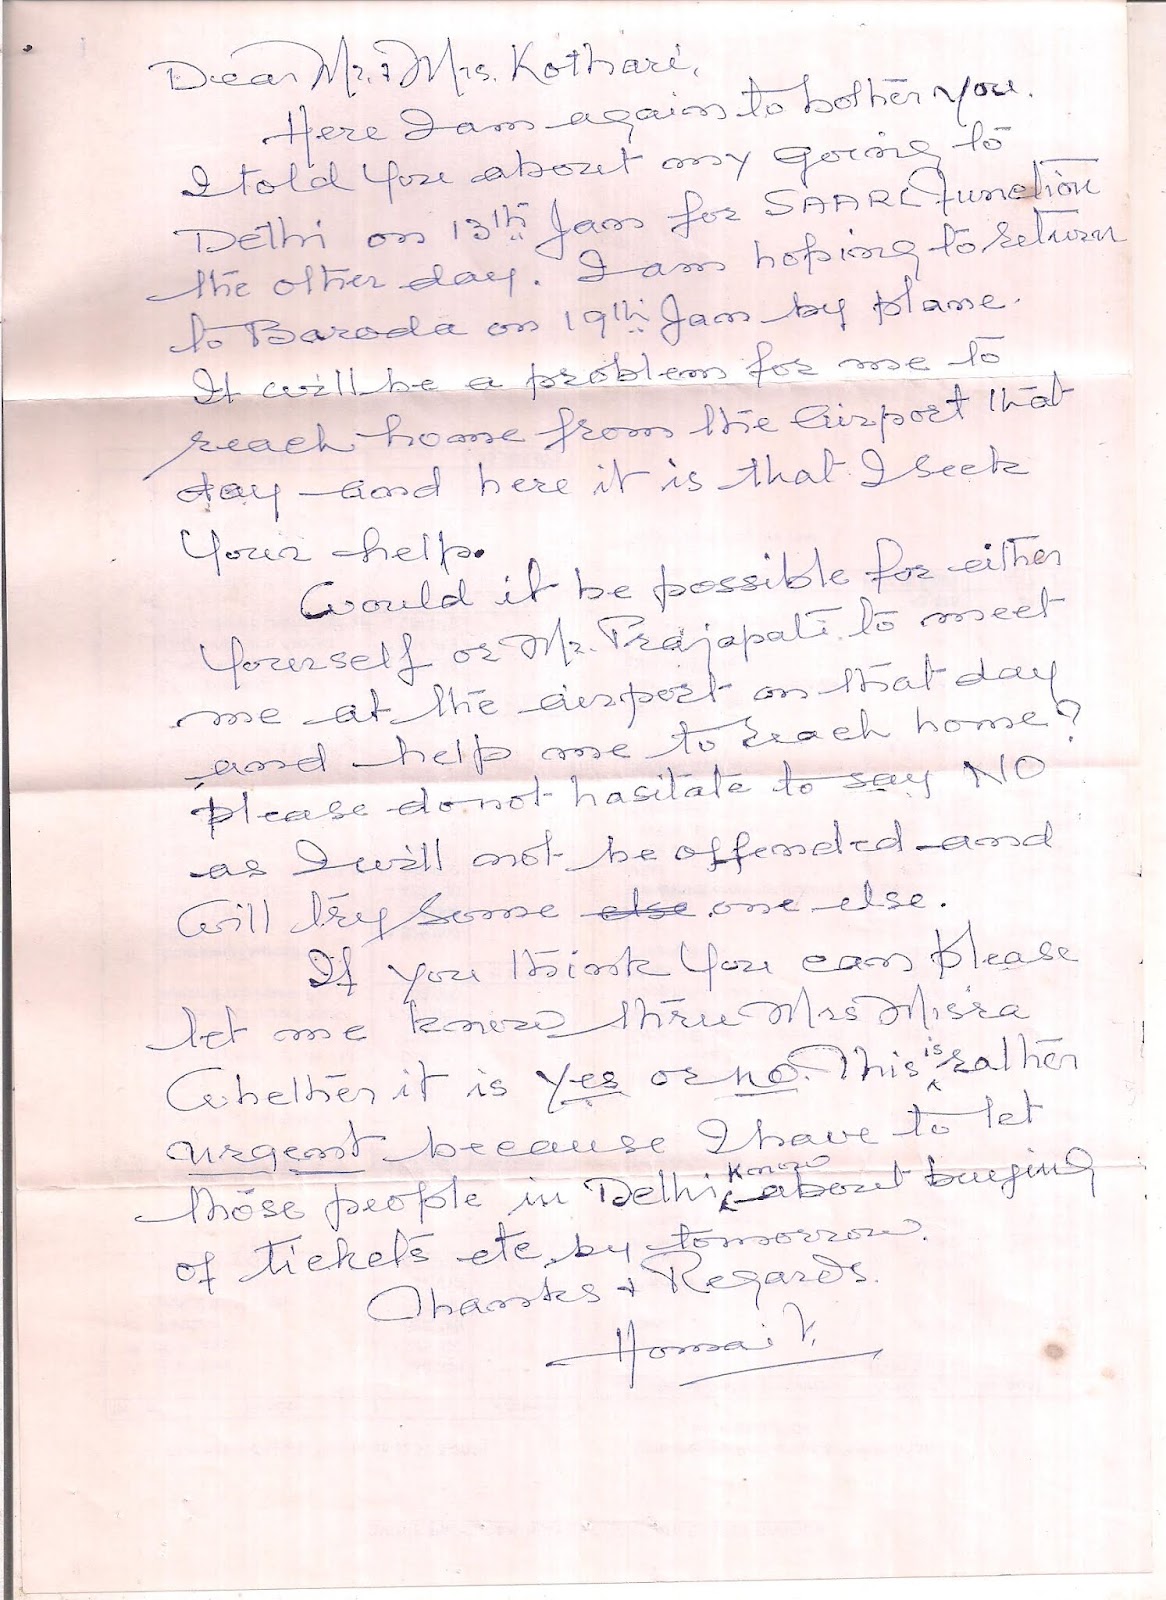 Dear Mr. & Mrs. Kothari,
Here I am again to bother you.
I told you about my going to
Delhi on 13th Jan for SAARC function
the other day. I am hoping to return
to Baroda on 19th Jan by plane.
It will be a problem for me to
reach home from the airport that
day and here it is that I seek
your help.
Would it be possible for either
yourself or Mr. Prajapati to meet
me at the airport on that day
and help me to reach home?
please do not hasitate to say NO
as I will not be offended and
will try some else one else.
If you think you can please
let me know thru Mrs Misra
whether it is yes or no. This is rather
urgent because I have to let
those people in Delhi know about buying
of tickets etc, by tomorrow.
Thanks & Regards.
Homai V.